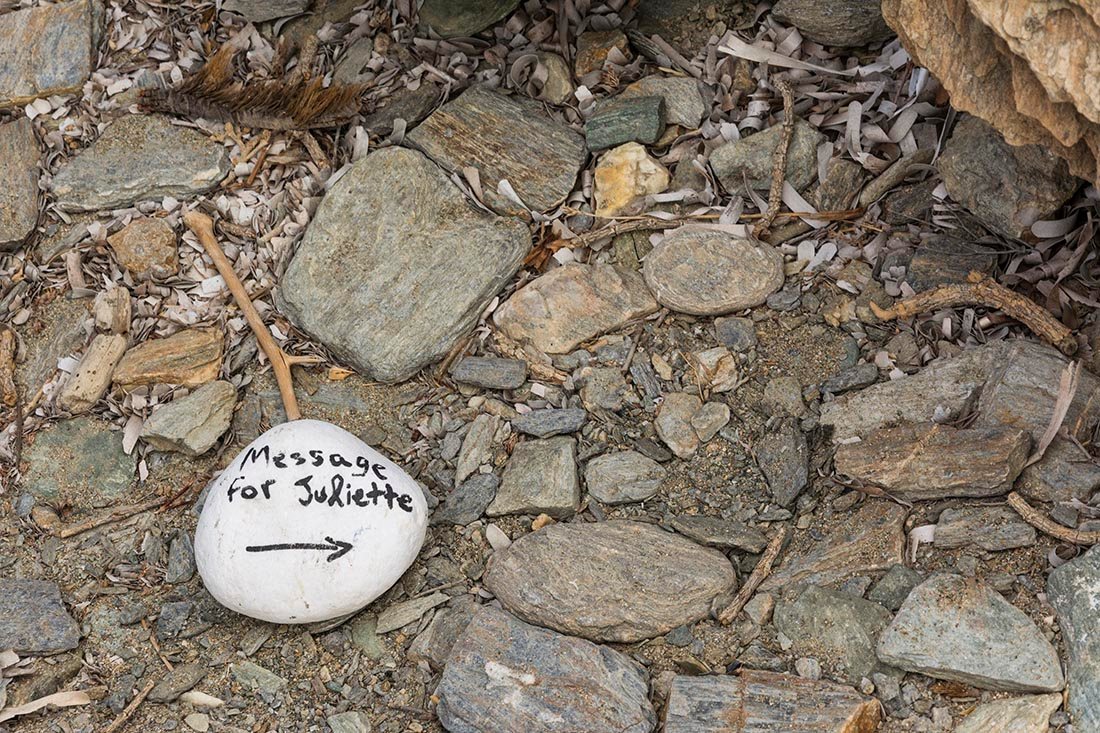 Message
for Juliette